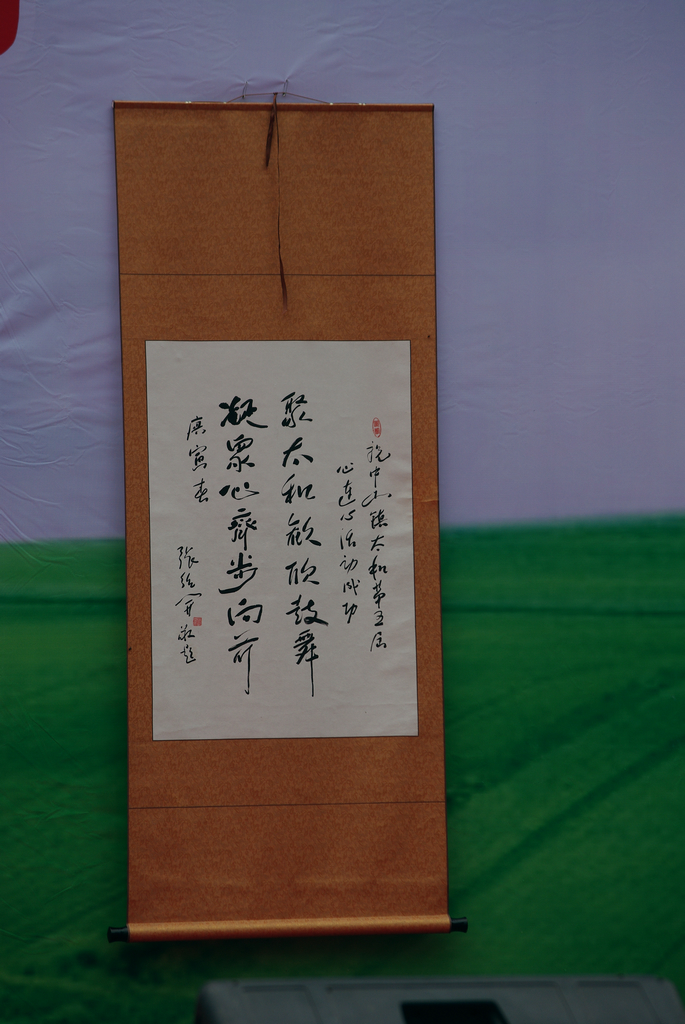 祝中山镇太和第五届
心连心活动成功
聚太和歡欣鼓舞
凝眾心齊步向前
庚寅春
張 敬題